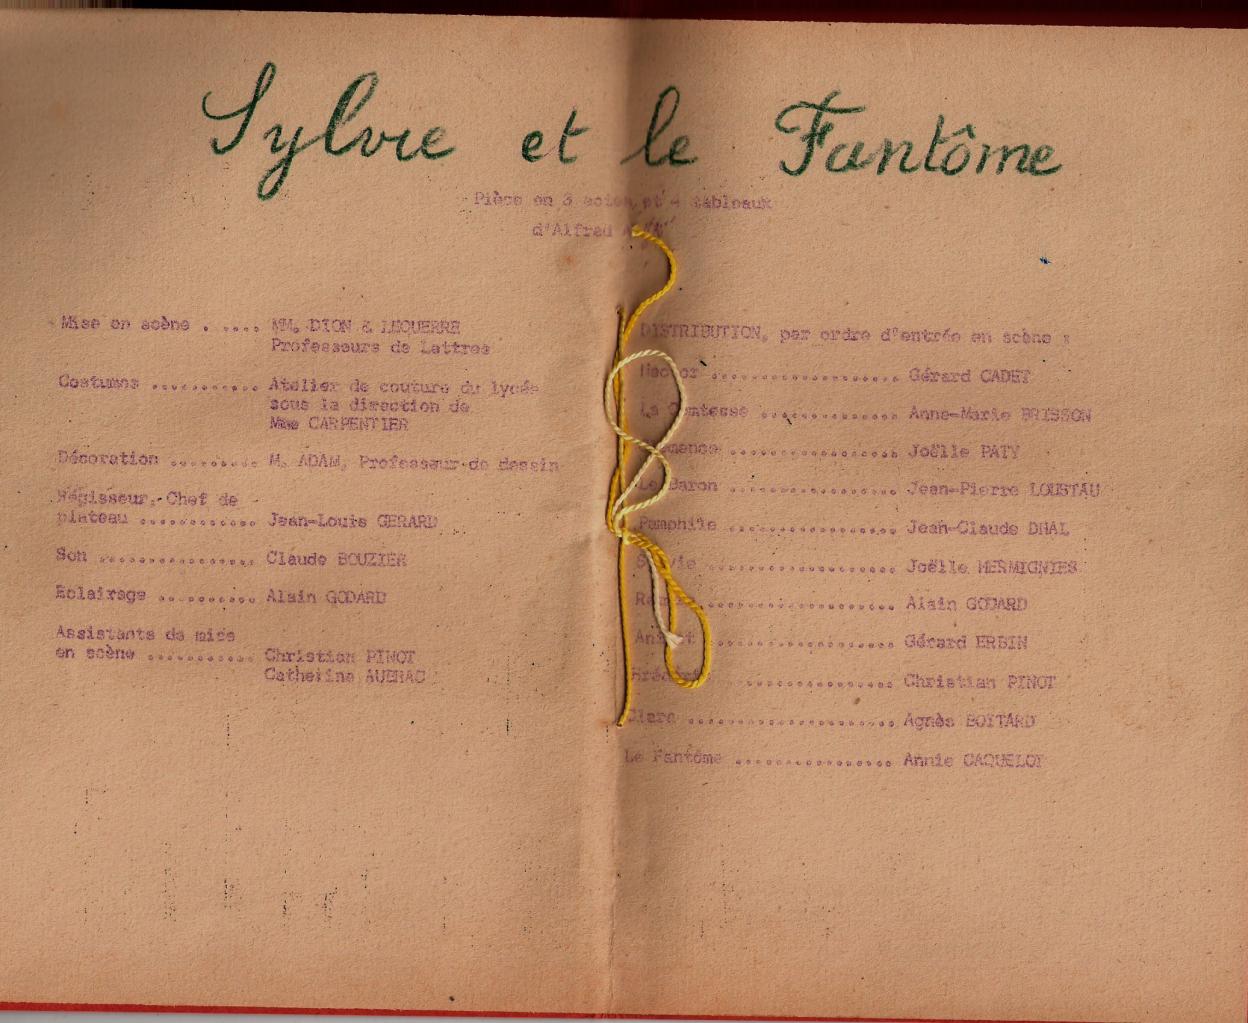 Sylvie et le Fantôme
Pièce en 3 actes et 4 tableaux
d'Alfred
Mise en scène . .... MM. DION & LEQUERRE
Professeurs de Lettres
Costumes ........... Atelier de couture du lycée
sous la direction de
Mme CARPENTIER
Décoration ......... M. ADAM, Professeur de dessin
Régisseur, Chef de
plateau ............ Jean-Louis GERARD
Son ................ Claude BOUZIER
Eclairage .......... Alain GODARD
Assistants de mise
en scène ........... Christian PINOT
Catherine AUBRAC
DISTRIBUTION, par ordre d'entrée en scène :
Hector .................... Gérard CADET
La Comtesse ............... Anne-Marie BRISSON
.................... Joëlle PATY
Le Baron .................. Jean-Pierre LOUSTAU
Pamphile .................. Jean-Claude DHAL
Sylvie .................... Joëlle HERMIGNIES
..................... Alain GODARD
.................... Gérard ERBIN
............... Christian PINOT
Clara ...................... Agnès BOITARD
Le Fantôme ................. Annie CAQUELOT